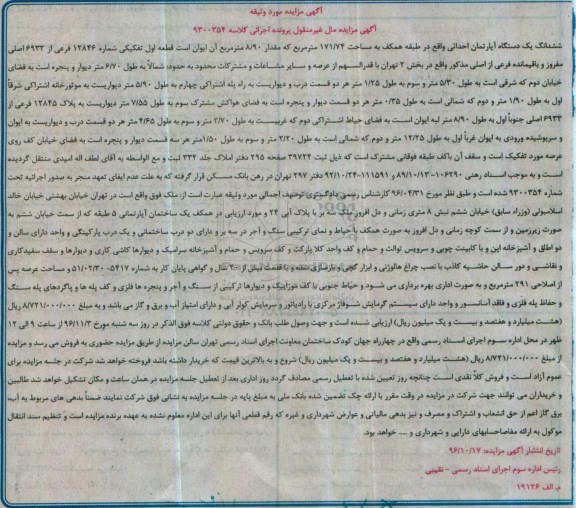 آگهی مزایده مورد وثیقه
آگهی مزایده مال غیرمنقول پرونده اجرائی کلاسه ۹۳۰۰۳۵۴
ششدانگ یک دستگاه آپارتمان احداثی واقع در طبقه همکف به مساحت ۱۷۱/۷۴ مترمربع که مقدار ۸/۹۰ مترمربع آن ایوان است قطعه اول تفکیکی شماره ۱۲۸۴۶ فرعی از ۶۹۳۳ اصلی
مفروز و باقیمانده فرعی از اصلی مذکور واقع در بخش ۲ تهران با قدرالسهم از عرصه و سایر مشاعات و مشترکات محدود به حدود: شمالاً به طول ۶/۷۰ متر دیوار و پنجره است به فضای
خیابان دوم که شرقی است به طول ۵/۳۰ متر و سوم به طول ۱/۲۵ متر هر دو قسمت درب و دیواریست به راه پله اشتراکی چهارم به طول ۵/۹۰ متر دیواریست به موتورخانه اشتراکی شرقاً
اول به طول ۱/۹۰ متر و دوم که شمالی است به طول ۰/۳۵ متر هر دو قسمت دیوار و پنجره است به فضای هواکش مشترک سوم به طول ۷/۵۵ متر دیواریست به پلاک ۱۲۸۴۵ فرعی از
۶۹۳۳ اصلی جنوباً اول به طول ۸/۹۰ متر لبه ایوان است به فضای حیاط اشتراکی دوم که غربیست به طول ۲/۷۰ متر و سوم به طول ۴/۶۵ متر هر دو قسمت درب و دیواریست به ایوان
و سرپوشیده ورودی به ایوان غرباً اول به طول ۱۲/۲۵ متر و دوم که شمالی است به طول ۳/۲۰ متر و سوم به طول ۱/۵۰متر هر سه قسمت دیوار و پنجره است به فضای خیابان کف روی
عرصه مورد تفکیک است و سقف آن باکف طبقه فوقانی مشترک است که ذیل ثبت ۳۹۷۲۴ صفحه ۲۹۵ دفتر املاک جلد ۳۳۴ ثبت و مع الواسطه به آقای لطف اله امیدی منتقل گردیده
است و به موجب اسناد رهنی ۱۰۶۲۹۰-۸۹/۱۰/۱۳ و ۱۱۱۵۹۱-۹۲/۱۰/۲۳ دفتر ۲۹۷ تهران در رهن بانک مسکن قرار گرفته که به علت عدم ایفای تعهد منجر به صدور اجرائیه تحت
شماره ۹۳۰۰۳۵۴ شده است و طبق نظر مورخ ۹۶/۰۴/۳۱ کارشناس رسمی دادگستری توصیف اجمالی مورد وثیقه عبارت است از: ملک فوق واقع است در تهران خیابان بهشتی خیابان خالد
اسلامبولی (وزراء سابق) خیابان ششم نبش ۸ متری زمانی و دل افروز ملک سه بر با پلاک آبی ۲۴ و مورد ارزیابی در همکف یک ساختمان آپارتمانی ۵ طبقه که از سمت خیابان ششم به
صورت زیرزمین و از سمت کوچه زمانی و دل افروز به صورت همکف با حیاط و نمای ترکیبی سنگ و آجر در سه بر و دارای دو درب ساختمانی و یک درب پارکینگی و واحد دارای سالن و
دو اطاق و آشپزخانه اپن و با کابینت چوبی و سرویس توالت و حمام و کف واحد کلا پارکت و کف سرویس و حمام و آشپزخانه سرامیک و دیوارها کاشی کاری و دیوارها و سقف سفیدکاری
و نقاشی و دور سالن حاشیه کاذب با نصب چراغ هالوژنی و ابزار گچی و بازسازی شده و با قدمت بیش از ۲۰ سال و گواهی پایان کار به شماره ۵۴۱۷-۵۱/۰۲/۳۰ و مساحت عرصه پس
از اصلاحی ۲۹۱ مترمربع و به صورت اداری بهره برداری می شود و حیاط جنوبی با کف موزاییک و دیوارها ترکیبی از سنگ و آجر و پنجره ها فلزی و کف پله ها و پاگردهای پله سنگ
و حفاظ پله فلزی و فاقد آسانسور و واحد دارای سیستم گرمایش شوفاژ مرکزی با رادیاتور و سرمایش کولر آبی و دارای امتیاز آب و برق و گاز می باشد و به مبلغ ۸/۷۲۱/۰۰۰/۰۰۰ ریال
(هشت میلیارد و هفتصد و بیست و یک میلیون ریال) ارزیابی شده است و جهت وصول طلب بانک و حقوق دولتی کلاسه فوق الذکر در روز سه شنبه مورخ ۹۶/۱۱/۳ از ساعت ۹ الی ۱۲
ظهر در محل اداره سوم اجرای اسناد رسمی واقع در چهارراه جهان کودک ساختمان معاونت اجرای اسناد رسمی تهران سالن مزایده از طریق مزایده حضوری به فروش می رسد و مزایده
از مبلغ ۸/۷۲۱/۰۰۰/۰۰۰ ریال (هشت میلیارد و هفتصد و بیست و یک میلیون ریال) شروع و به بالاترین قیمت که خریدار داشته باشد فروخته خواهد شد شرکت در جلسه مزایده برای
عموم آزاد است و فروش کلاً نقدی است چنانچه روز تعیین شده با تعطیل رسمی مصادف گردد روز اداری بعد از تعطیل جلسه مزایده در همان ساعت و مکان تشکیل خواهد شد طالبین
و خریداران می توانند جهت شرکت در مزایده در وقت مقرر با ارائه چک تضمین شده بانک ملی به مبلغ پایه در جلسه مزایده به نشانی فوق شرکت نمایند ضمناً بدهی های مربوط به آب،
برق گاز اعم از حق انشعاب و اشتراک و مصرف و نیز بدهی مالیاتی و عوارض شهرداری و غیره که رقم قطعی آنها برای این اداره معلوم نشده به عهده برنده مزایده است و تنظیم سند انتقال
موکول به ارائه مفاصاحسابهای دارایی و شهرداری و .... خواهد بود.
تاریخ انتشار آگهی مزایده: ۹۶/۱۰/۱۷
رئیس اداره سوم اجرای اسناد رسمی - نقیبی
م الف ۱۹۱۲۶